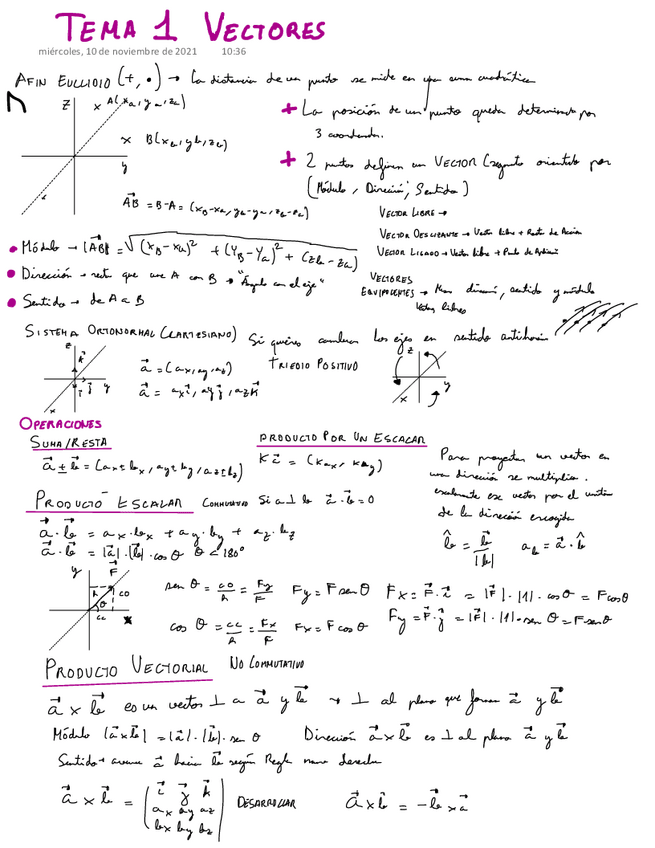 TEMA 1 VECTORES
miércoles, 10 de noviembre de 2021 10:36
AFIN EUCLIDIO (+, •) → La distancia de un punto se mide en una suma cuadrática
z
x A(xₐ, yₐ, zₐ)
+ La posición de un punto queda determinada por
3 coordenadas.
x B(x_b, y_b, z_b)
y
+ 2 puntos definen un VECTOR (segmento orientado por
(Módulo, Dirección, Sentido)
AB⃗ = B-A = (x_B-xₐ, y_B-yₐ, z_B-zₐ)
VECTOR LIBRE →
VECTOR DESLIZANTE → Vector libre + Recta de Acción
VECTOR LIGADO → Vector libre + Punto de
• Módulo → |AB⃗| = √(x_B-xₐ)² + (y_B-yₐ)² + (z_B-zₐ)
• Dirección → recta que une A con B → "Ángulo con el eje"
VECTORES
EQUIPOLENTES → dirección, sentido y módulo
Vectores libres
• Sentido → de A a B
SISTEMA ORTONORMAL (CARTESIANO)
Si quieres cambiar los ejes en sentido antihorario
TRIEDIO POSITIVO
z
k⃗
i⃗ j⃗ y
x
a⃗ = (ax, ay, az)
a⃗ = ax i⃗, ay j⃗, az k⃗
z
y
x
OPERACIONES
SUMA/RESTA
a⃗ ± b⃗ = (ax ± bx, ay ± by, az ± bz)
PRODUCTO POR UN ESCALAR
K a⃗ = (Kax, Kay)
Para proyectar un vector en
una dirección se multiplica
escalarmente ese vector por el unitario
de la dirección escogida
b̂ = b⃗/|b| a_b = a⃗ · b̂
PRODUCTO ESCALAR CONMUTATIVO Si a ⊥ b a⃗ · b⃗ = 0
a⃗ · b⃗ = ax · bx + ay · by + az · bz
a⃗ · b⃗ = |a⃗| · |b⃗| · cos θ θ < 180°
y
F⃗
h
co
θ
cc
x
sen θ = co/h = Fy/F Fy = F sen θ Fx = F⃗ · i⃗ = |F⃗| · |1| · cos θ = F cos θ
cos θ = cc/h = Fx/F Fx = F cos θ Fy = F⃗ · j⃗ = |F⃗| · |1| · sen θ = F sen θ
PRODUCTO VECTORIAL NO CONMUTATIVO
a⃗ x b⃗ es un vector ⊥ a a⃗ y b⃗ → ⊥ al plano que forman a⃗ y b⃗
Módulo |a⃗ x b⃗| = |a⃗| · |b⃗| · sen θ Dirección a⃗ x b⃗ es ⊥ al plano a⃗ y b⃗
Sentido → avance a⃗ hacia b⃗ según Regla mano derecha
a⃗ x b⃗ = ( i⃗ j⃗ k⃗
ax ay az
bx by bz ) DESARROLLAR a⃗ x b⃗ = -b⃗ x a⃗